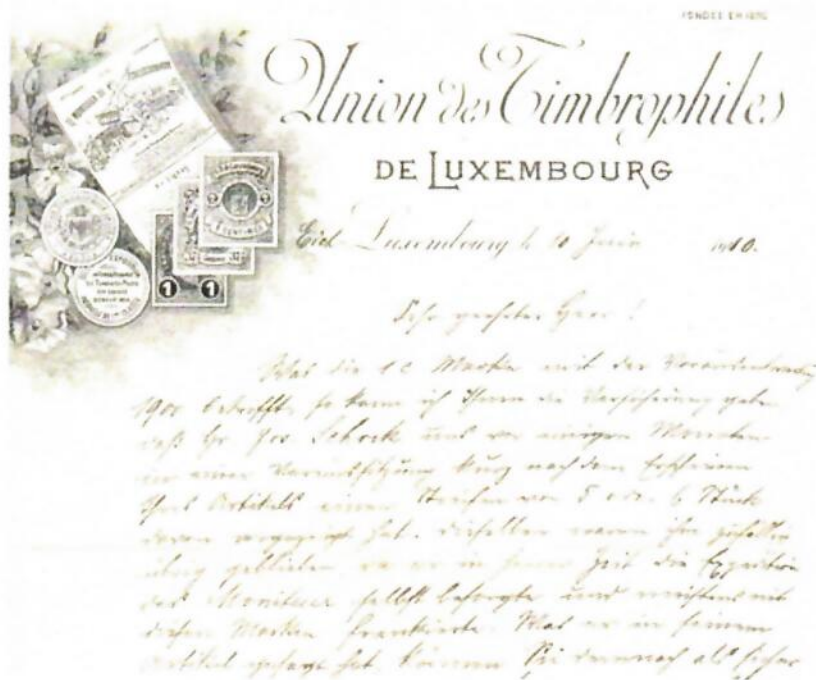 FONDÉE EN 1890
Union des Timbrophiles
DE LUXEMBOURG
Eich-Luxembourg le 10 Juin 1910.
Sehr geehrter Herr!
Was die 1 c Marke mit der Vorausentwertung
1900 betrifft, so kann ich Ihnen die Versicherung geben
daß Hr. Jos. Schock uns vor einigen Monaten
in einer Vereinssitzung kurz nach dem Erscheinen
Ihres Artikels einen Streifen von 5 oder 6 Stück
davon vorgezeigt hat. Dieselben waren ihm
übrig geblieben da er in jener Zeit die Expedition
des Moniteur selbst besorgte und meistens mit
diesen Marken frankierte. Was er in seinem
Artikel gesagt hat können Sie demnach als sicher
1 1